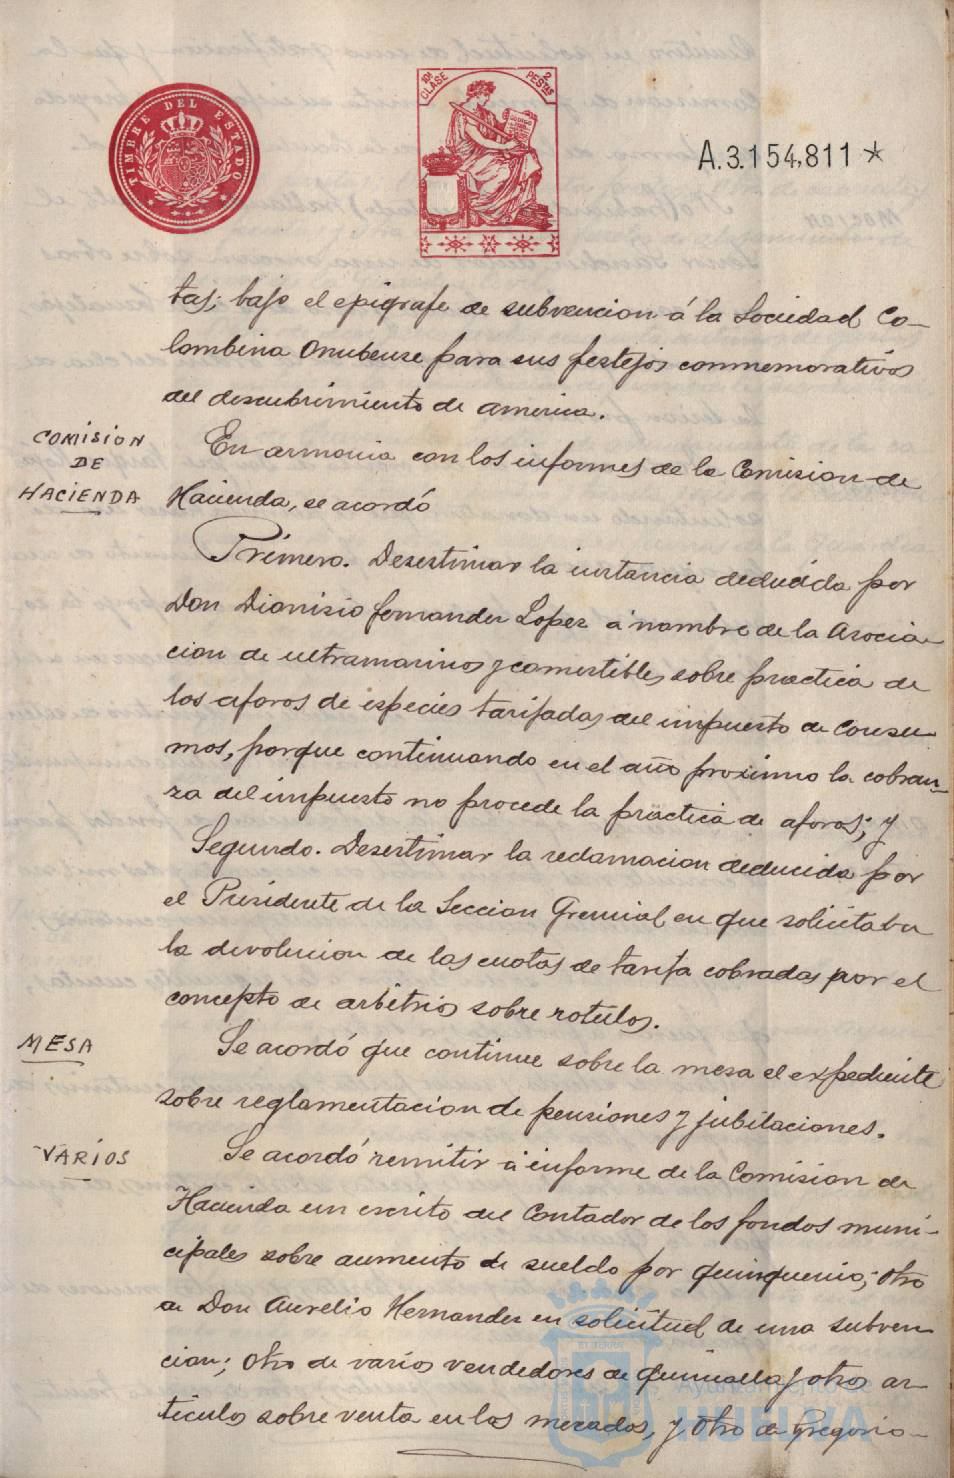 TIMBRE DEL ESTADO
10ª CLASE
2 PESTAS
A.3.154,811 *
tas; bajo el epigrafe de subvencion á la Sociedad Co-
lombina Onubense para sus festejos conmemorativos
del descubrimiento de America.
COMISION
DE
HACIENDA
En armonia con los informes de la Comision de
Hacienda, se acordó
Primero. Desestimar la instancia deducida por
Don Dionisio Fernandez Lopez á nombre de la Asocia-
cion de ultramarinos y comestibles sobre practica de
los aforos de especies tarifadas del impuesto de Consu-
mos, porque continuando en el año proximo la cobran-
za del impuesto no procede la practica de aforos; y
Segundo. Desestimar la reclamacion deducida por
el Presidente de la Seccion Gremial en que solicitaba
la devolucion de las cuotas de tarifa cobradas por el
concepto de arbitrios sobre rotulos.
MESA
Se acordó que continue sobre la mesa el expediente
sobre reglamentacion de pensiones y jubilaciones.
VARIOS
Se acordó remitir á informe de la Comision de
Hacienda un escrito del Contador de los fondos muni-
cipales sobre aumento de sueldo por quinquenio; otro
de Don Aurelio Hernandez en solicitud de una subven
cion; otro de varios vendedores de quincalla y otros ar-
ticulos sobre venta en los mercados, y otro de Gregorio
Ayuntamiento de
HUELVA